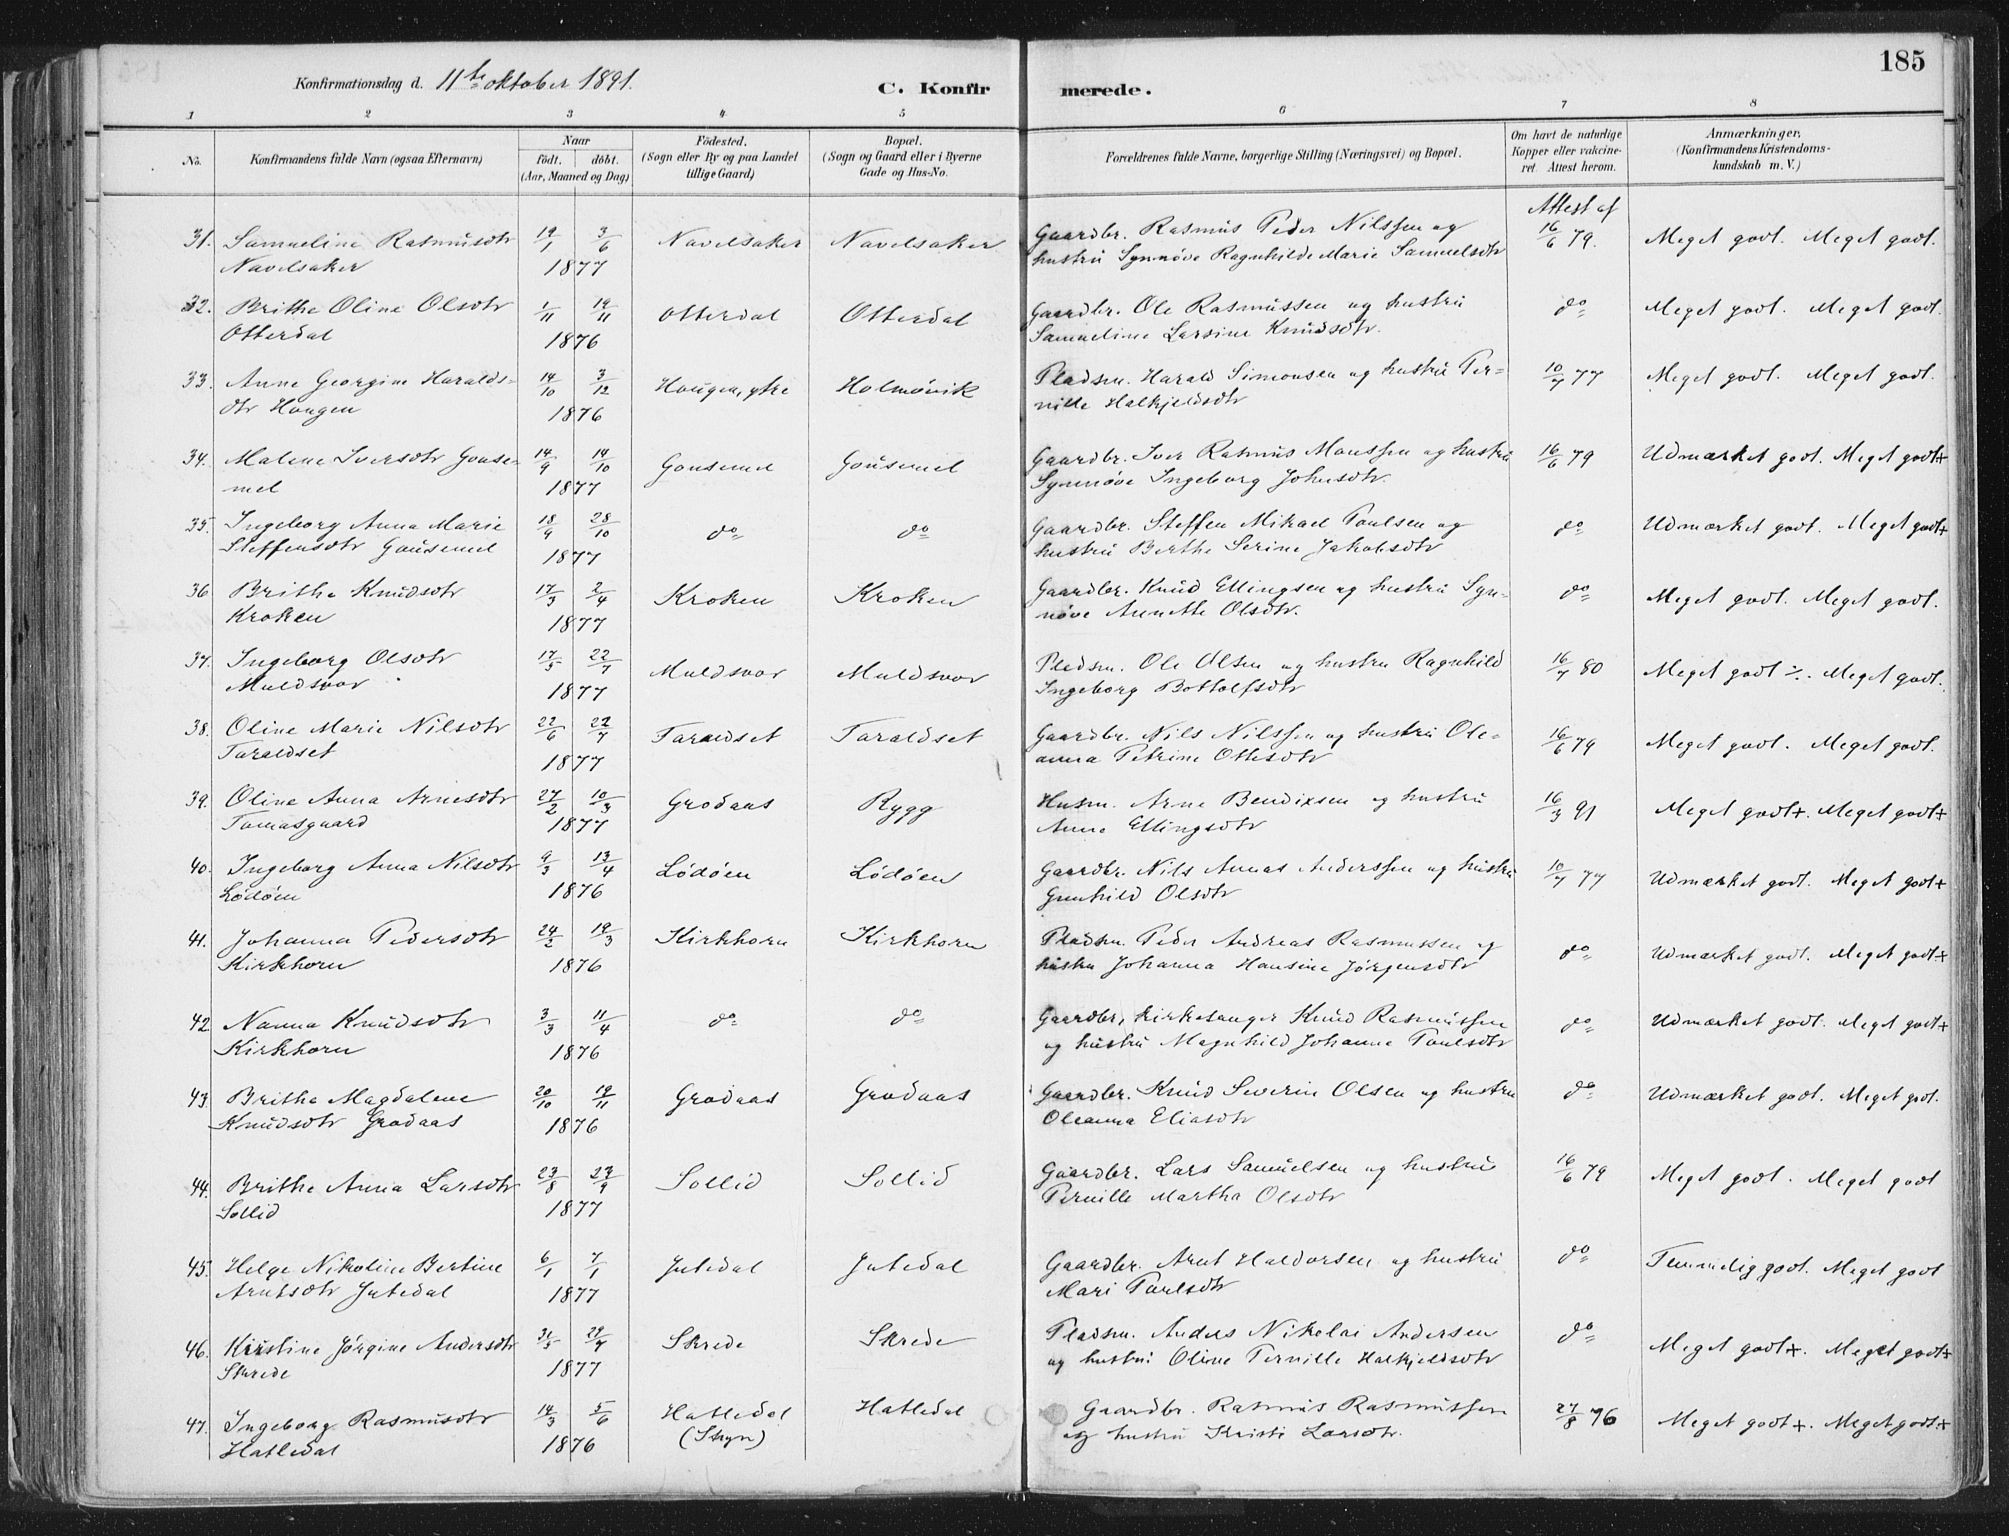 185
Konfirmationsdag d. 11te oktober 1891.
C. Konfirmerede.
1 2 3 4 5 6 7 8
No. Konfirmandens fulde Navn (ogsaa Efternavn) Naar født. døbt. (Aar, Maaned og Dag) Fødested. (Sogn eller By og paa Landet tillige Gaard) Bopæl. (Sogn og Gaard eller i Byerne Gade og Hus-No. Forældrenes fulde Navne, borgerlige Stilling (Næringsvei) og Bopæl. Om havt de naturlige Kopper eller vakcineret. Attest herom. Anmærkninger. (Konfirmandens Kristendomskundskab m. V.)
Attest af
31. Samueline Rasmusdtr 19/1 3/6 Navelsaker Navelsaker Gaardbr. Rasmus Peder Nilssen og 16/6 79. Meget godt. Meget godt.
Navelsaker 1877 hustru Synnøve Ragnhilde Marie Samuelsdtr
32. Brithe Oline Olsdtr 1/11 19/11 Otterdal Otterdal Gaardbr. Ole Rasmussen og hustru do Meget godt. Meget godt.
Otterdal 1876 Samueline Larsine Knudsdtr.
33. Anne Georgine Haralds- 14/10 3/12 Hougen, ytre Holmøivik Pladsm. Harald Simonsen og hustru Per- 10/7 77 Meget godt. Meget godt.
dtr Hougen 1876 nille Halkjeldsdtr
34. Malene Iversdtr Gouse- 14/9 14/10 Gousemel Gousemel Gaardbr. Iver Rasmus Monssen og hustru 16/6 79 Udmærket godt. Meget godt+
mel 1877 Synnøve Ingeborg Johnsdtr.
35. Ingeborg Anna Marie 18/9 28/10 do do Gaardbr. Steffen Mikael Poulsen og do Udmærket godt. Meget godt+
Steffensdtr Gousemel 1877 hustru Berthe Serine Jakobsdtr
36 Brithe Knudsdtr 17/3 2/4 Kroken Kroken Gaardbr. Knud Ellingsen og hustru Syn- do Meget godt. Meget godt.
Kroken 1877 nøve Annette Olsdtr.
37. Ingeborg Olsdtr 17/5 22/7 Muldsvor Muldsvor Pladsm. Ole Olsen og hustru Ragnhild 16/7 80 Meget godt ÷. Meget godt.
Muldsvor 1877 Ingeborg Bottolfsdtr
38. Oline Marie Nilsdtr 22/6 22/7 Taraldset Taraldset Gaardbr. Nils Nilssen og hustru Ole- 16/6 79 Meget godt. Meget godt.
Taraldset 1877 anna Petrine Ottesdtr
39. Oline Anna Arnesdtr 27/2 10/3 Grodaas Rygg Husm. Arne Bendixsen og hustru 16/3 91 Meget godt+. Meget godt+
Tomasgaard 1877 Anne Ellingsdtr
40. Ingeborg Anna Nilsdtr 9/3 13/4 Lødøen Lødøen Gaardbr. Nils Annas Anderssen og hustru 10/7 77 Udmærket godt. Meget godt+
Lødøen 1876 Gunhild Olsdtr
41. Johanna Pedersdtr 24/2 19/3 Kirkhorn Kirkhorn Pladsm. Peder Andreas Rasmussen og do Udmærket godt. Meget godt+
Kirkhorn 1876 hustru Johanna Hansine Jørgensdtr
42 Nanna Knudsdtr 3/3 11/4 do do Gaardbr, kirkesanger Knud Rasmussen do Udmærket godt. Meget godt+
Kirkhorn 1876 og hustru Magnhild Johanne Poulsdtr
43. Brithe Magdalene 20/10 19/11 Grodaas Grodaas Gaardbr. Knud Severin Olsen og hustru do Udmærket godt. Meget godt.
Knudsdtr Grodaas 1876 Oleanna Eliasdtr
44. Brithe Anna Larsdtr 23/8 27/9 Sollid Sollid Gaardbr. Lars Samuelsen og hustru 16/6 79 Meget godt. Meget godt
Sollid 1877 Pernille Martha Olsdtr
45. Helge Nikoline Bertine 6/1 7/1 Jutedal Jutedal Gaardbr. Arnt Haldorsen og hustru do Temmelig godt. Meget godt
Arntsdtr Jutedal 1877 Mari Poulsdtr
46. Kirstine Jørgine Andersdtr 31/5 29/7 Skrede Skrede Pladsm. Anders Nikolai Andersen do Meget godt+. Meget godt+
Skrede 1877 og hustru Oline Pernille Halkjeldsdtr
47. Ingeborg Rasmusdtr 14/3 5/6 Hatledal Hatledal Gaardbr. Rasmus Rasmussen 27/8 76 Meget godt+. Meget godt+
Hatledal 1876 (Stryn) og hustru Kristi Larsdtr.